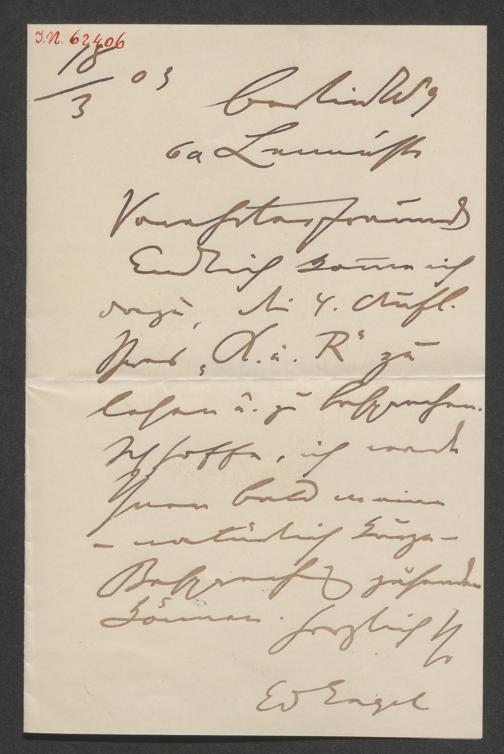 J.N. 62406
18/3 03
Berlin W 9
6a Lennéstr
Verehrter Freund
Endlich komme ich
dazu, die 4. Aufl.
Ihres „A. u. R“ zu
lesen u. zu besprechen.
Ich hoffe, ich werde
Ihnen bald meine
– natürlich kurze –
Besprechg zusenden
können. Herzlich Ihr
Ed Engel